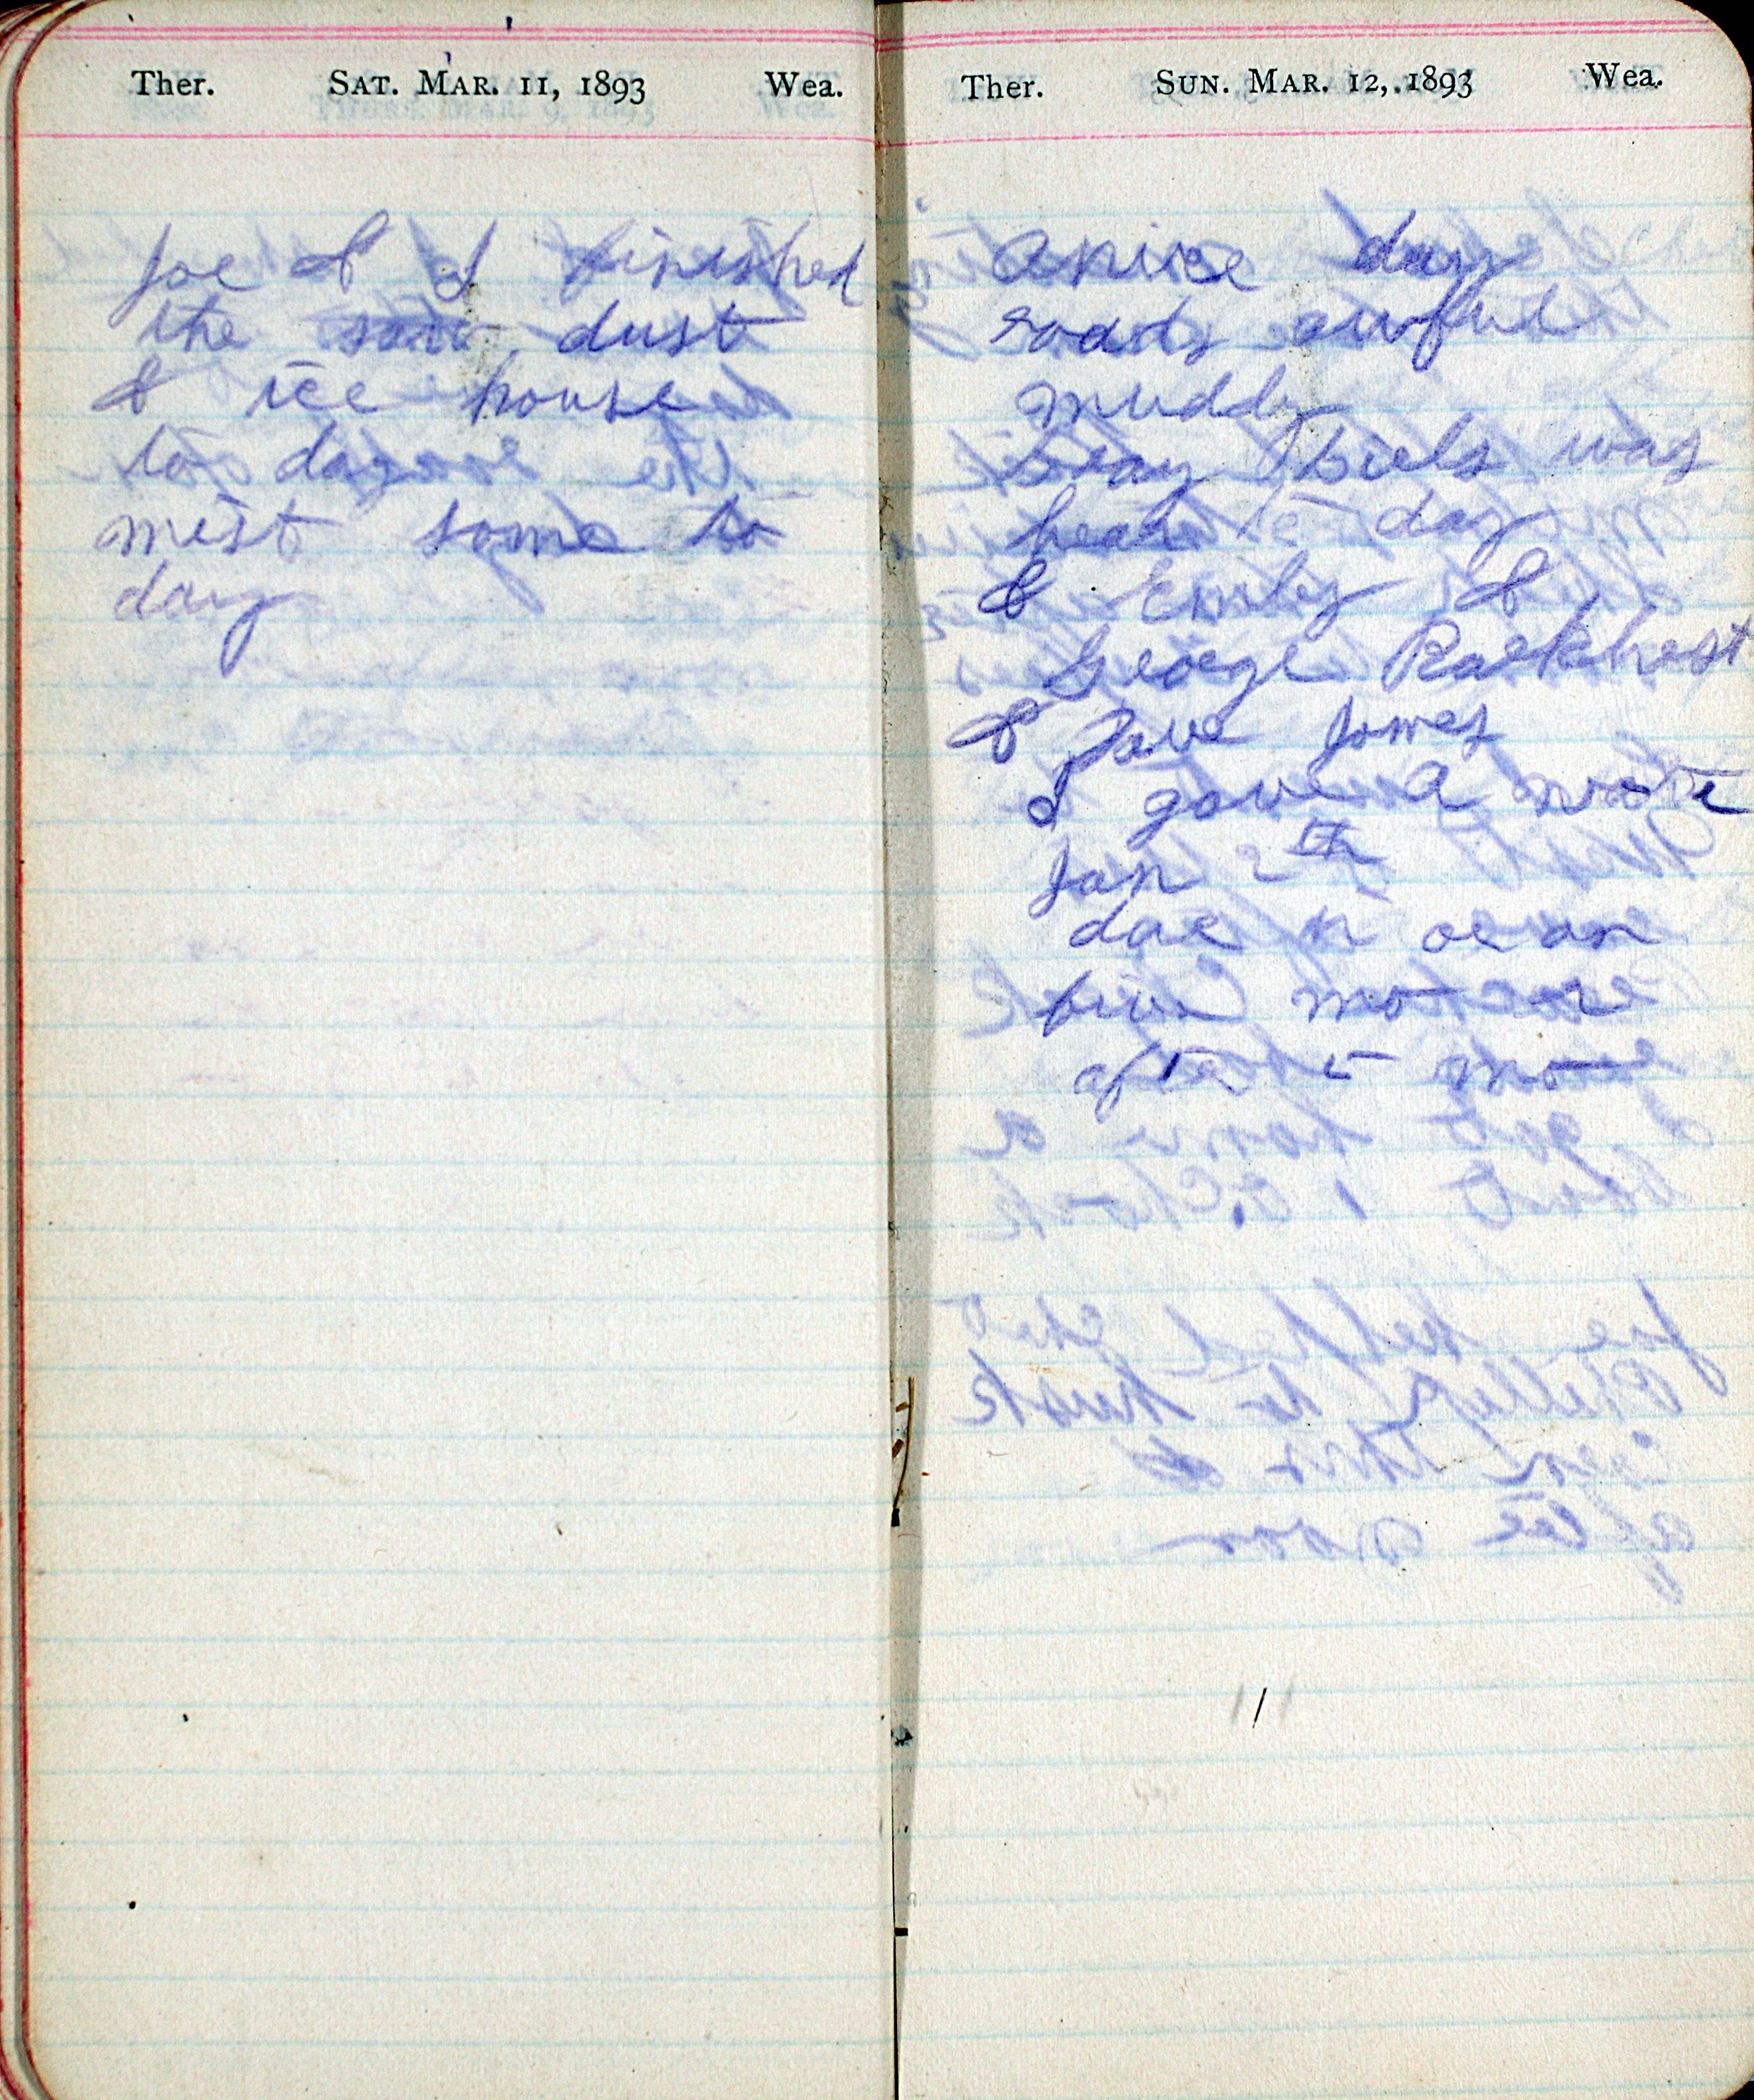 Ther. SAT. MAR. 11, 1893 Wea.
joe & I finished
the saw dust
& ice house
to day
mist some to
day
Ther. SUN. MAR. 12, 1893 Wea.
a nice day
roads awful
muddy
was
hear to day
& Emily &
George Rackhost
& Dave jones
I gave a note
jan 2th
due n
five mo
after mo